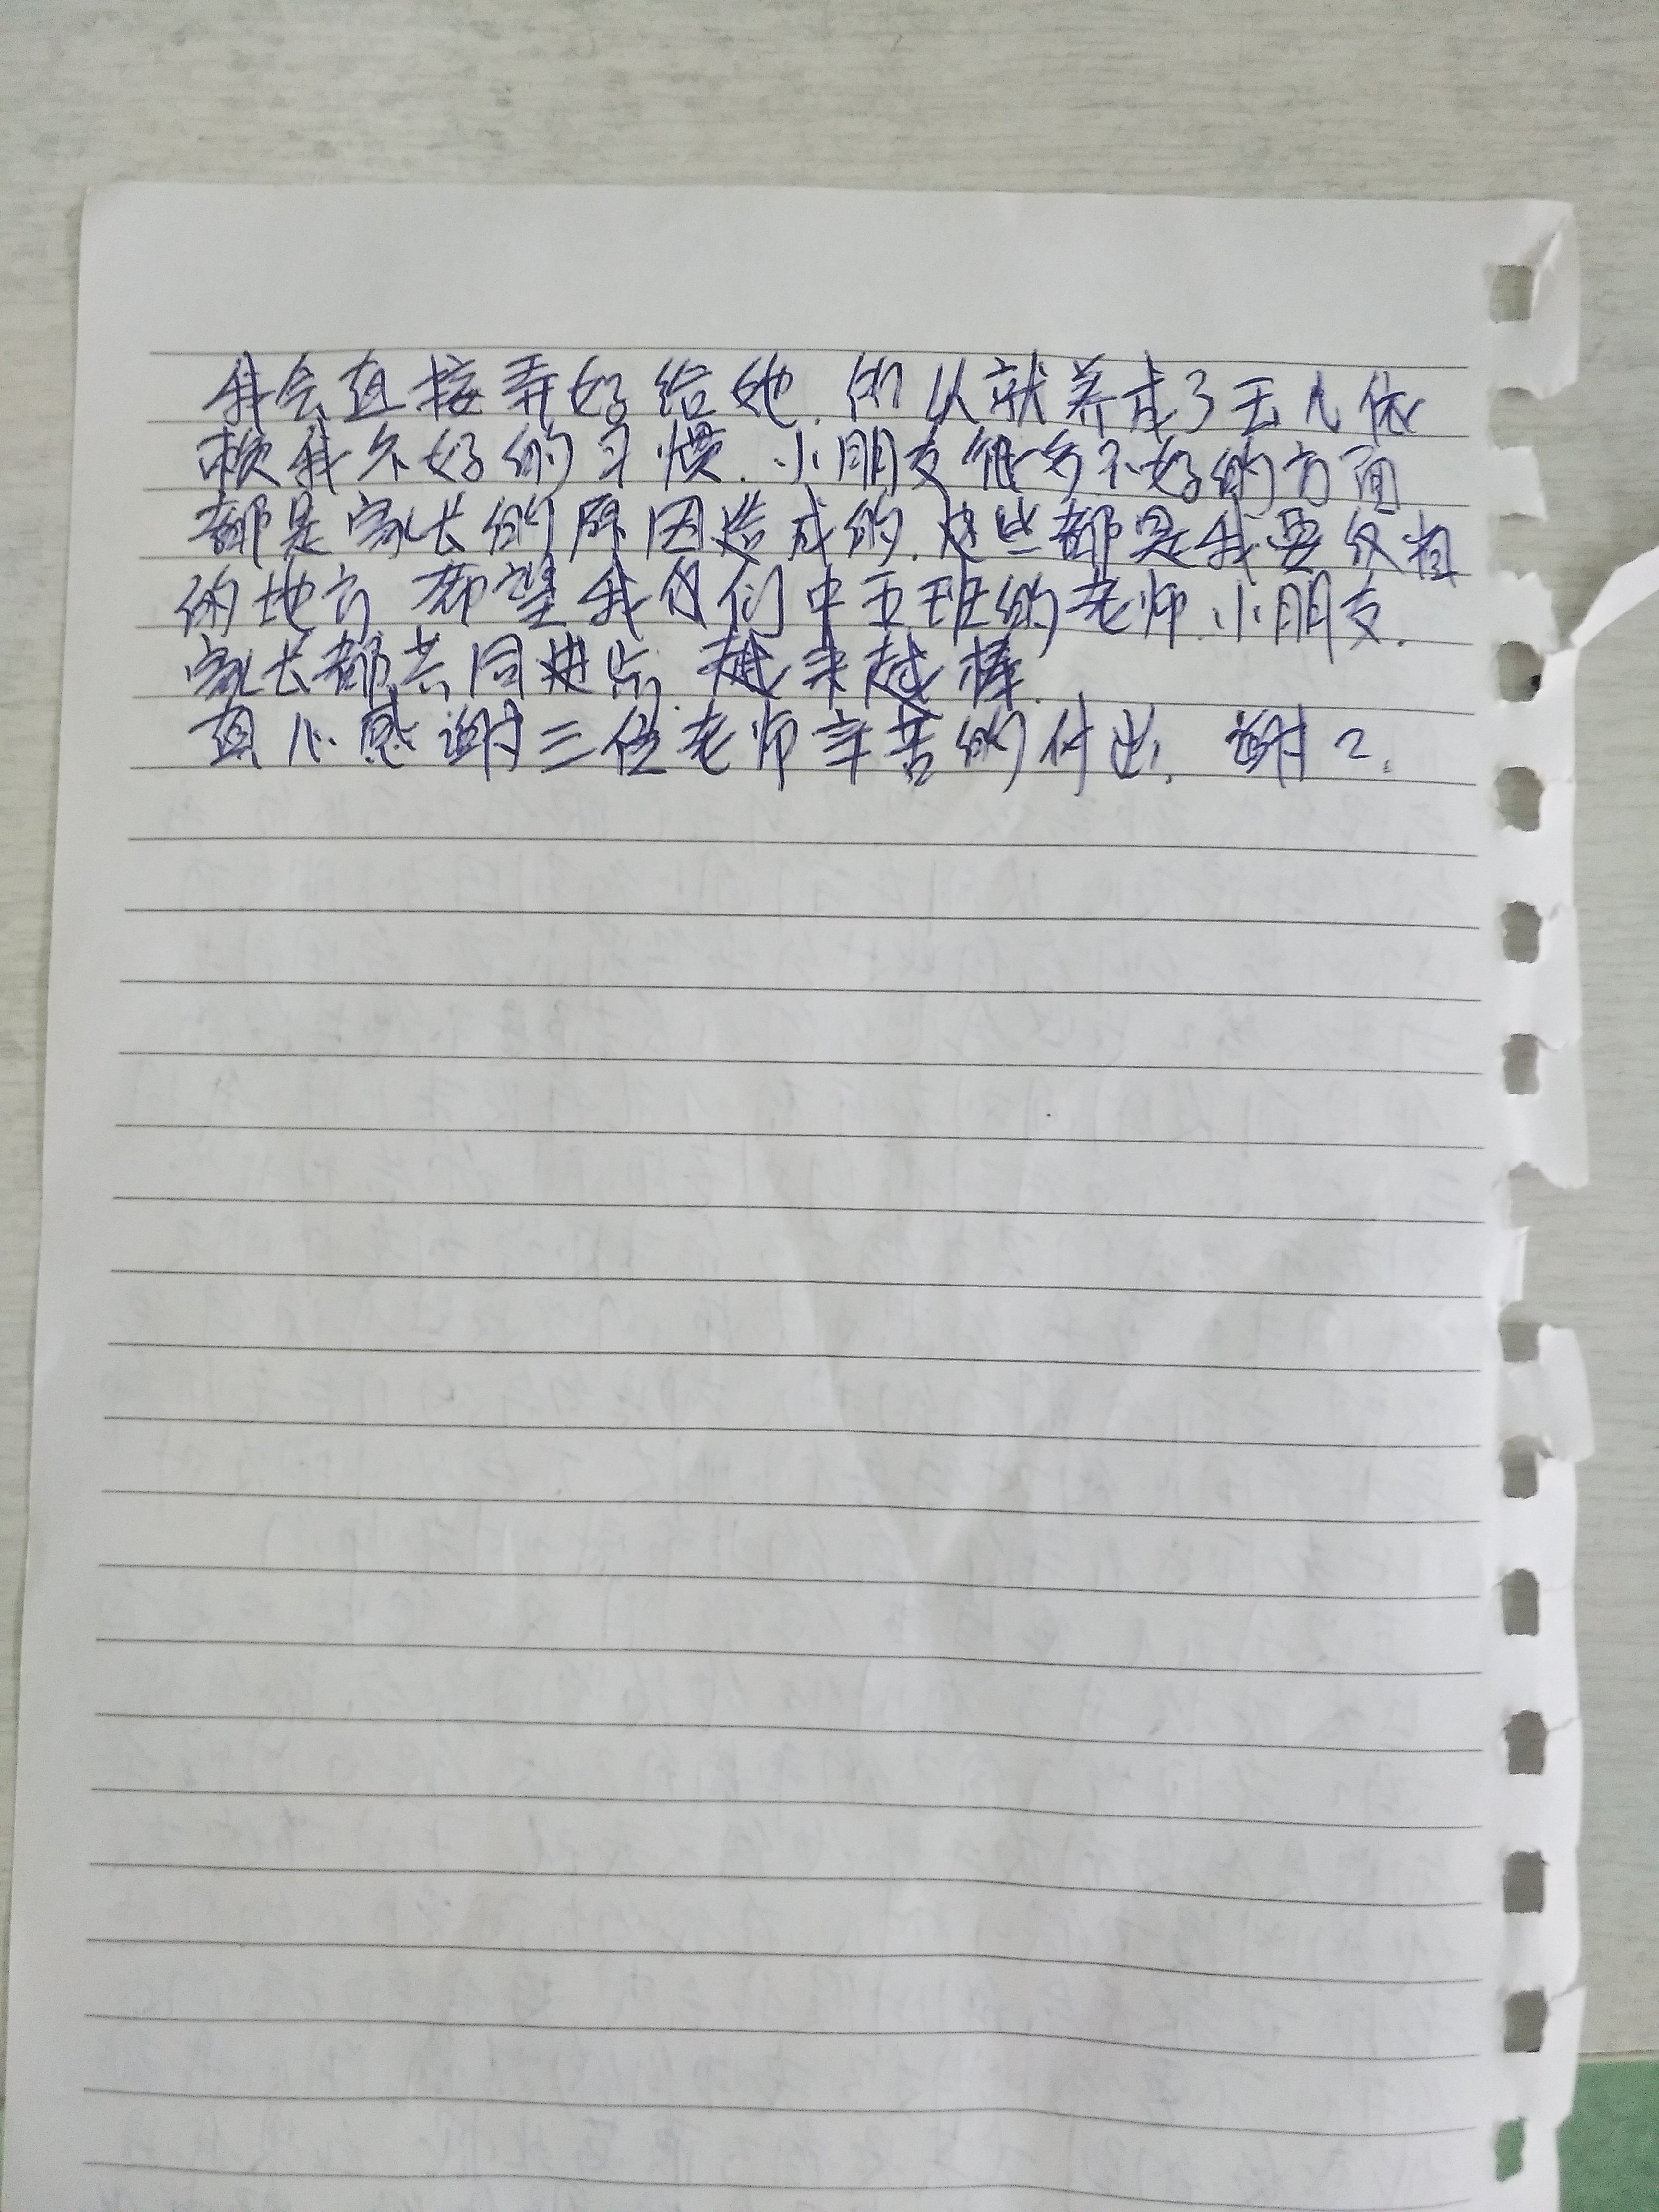 我会直接弄好给她.所以就养成了玉儿依
赖我不好的习惯.小朋友很多不好的方面
都是家长的原因造成的.这些都是我要改相
的地方 希望我们中五班的老师.小朋友.
家长都共同进步.越来越棒.
真心感谢三位老师辛苦的付出.谢2.